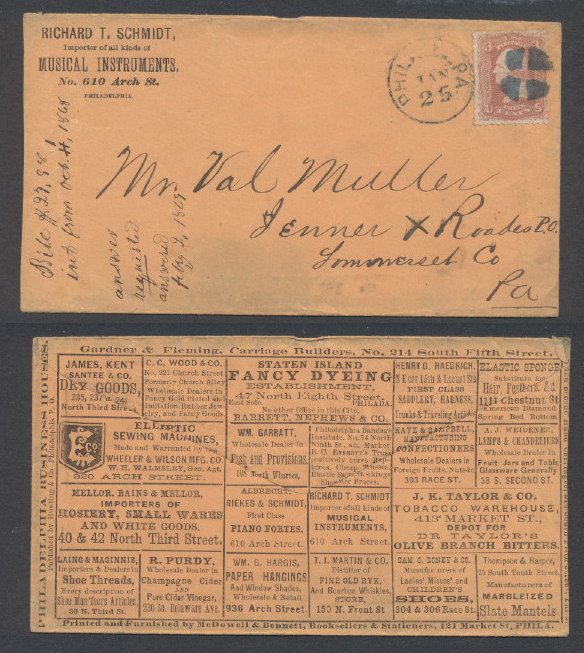 RICHARD T. SCHMIDT,
Importer of all kinds of
MUSICAL INSTRUMENTS.
No. 610 Arch St.
PHILADELPHIA.
PHIL PA
JAN
25
3
U THREE S
CENTS
Mr. Val Muller
Jenner X Roades P.O.
Sommerset Co
Pa
Bill $27,98,
int from Oct. 11, 1868
answer
requested
answered
1869
Gardner & Fleming, Carriage Builders, No. 214 South Fifth Street.
PHILADELPHIA BUSINESS HOUSES.
Published by Bunting & Co. Philadelphia P. O.
JAMES, KENT
SANTEE & CO.
DRY GOODS,
235, 237 & 241
North Third Street.
C. C. WOOD & CO.
No. 221 Church Street
Formerly Church Alley
Wholesale Dealers in
Fancy Gold, Plated and
Imitation Rubber Jew-
elry, and Fancy Goods.
STATEN ISLAND
FANCY DYEING
ESTABLISHMENT,
47 North Eighth Street,
East Side. PHILADA.
No other Office in this City.
BARRETT, NEPHEWS & CO.
HENRY G. HAEDRICH,
N E cor 16th & Locust Sts
FIRST CLASS
SADDLERY, HARNESS,
Trunks & Traveling Articles
ELASTIC SPONGE
Substitute for
Hair, Feathers, &c.
1111 Chestnut St
Spring Bed Bottom
CO
ELLIPTIC
SEWING MACHINES,
Made and Warranted by the
WHEELER & WILSON MFG. CO
W. H. WALMSLEY, Gen. Agt.
920 ARCH STREET.
WM. GARRATT,
Wholesale Dealer in
Fish and Provisions,
108 North Wharves.
Philadelphia Bandage
Institute, No. 14 North
Ninth St., ab. Market
B. C. Everett's Truss
positively cures Rup-
tures, Cheap Trusses,
Elastic Belts, Stockings
Shoulder Braces.
KATZ & CAMPBELL,
MANUFACTURING
CONFECTIONERS
Wholesale Dealers in
Foreign Fruits, Nuts &c
303 RACE ST.
A. J. WEIDENER,
LAMPS & CHANDELIERS
Wholesale Dealer in
Fruit Jars and Table
Glassware Generally
38 S. SECOND ST.
MELLOR, BAINS & MELLOR,
IMPORTERS OF
HOSIERY, SMALL WARES
AND WHITE GOODS,
40 & 42 North Third Street.
ALBRECHT,
RIEKES & SCHMIDT,
First Class
PIANO FORTES,
610 Arch Street.
RICHARD T. SCHMIDT
Importer of all kinds of
MUSICAL
INSTRUMENTS,
610 Arch Street.
J. K. TAYLOR & CO.
TOBACCO WAREHOUSE,
413 MARKET ST.,
DEPOT FOR
DR TAYLOR'S
OLIVE BRANCH BITTERS.
LAING & MAGINNIS,
Importers & Dealers in
Shoe Threads,
Every description of
Shoe Man'ftrers Articles
30 N. Third St.
R. PURDY,
Wholesale Dealer in
Champagne Cider
AND
Pure Cider Vinegar,
230 So. Delaware Ave.
WM. G. HARGIS,
PAPER HANGINGS
And Window Shades,
Wholesale & Retail
936 Arch Street.
T. J. MARTIN & CO.
Distiller of
FINE OLD RYE,
And Bourbon Whiskies,
STORE,
150 N. Front St
SAM. C. RONEY & CO.
Manufacturers of
Ladies' Misses' and
CHILDREN'S
SHOES,
304 & 306 Race St.
Thompson & Harper,
25 South Tenth Street
Manufacturers of
MARBLEIZED
Slate Mantels
Printed and Furnished by McDowell & Bennett, Booksellers & Stationers, 121 Market St, PHILA.